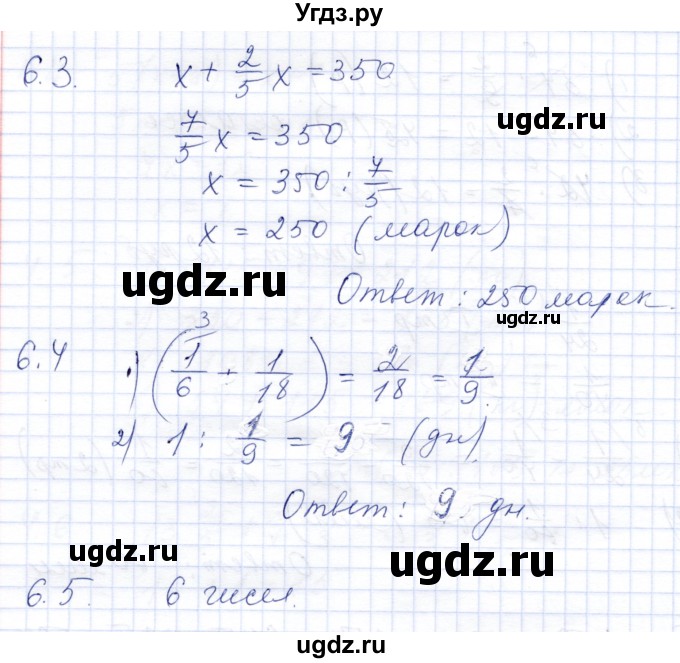 Угдз.ру
6.3. x + 2/5 x = 350
7/5 x = 350
ugdz.ru
x = 350 : 7/5
ugdz.ru
x = 250 (марок)
ugdz.ru
Ответ: 250 марок.
ugdz.ru
6.4 1) (1/6 - 1/18) = 2/18 = 1/9
3
2) 1 : 1/9 = 9 (дн).
Ответ: 9 дн.
ugdz.ru
ugdz.ru
6.5. 6 чисел.
ugdz.ru